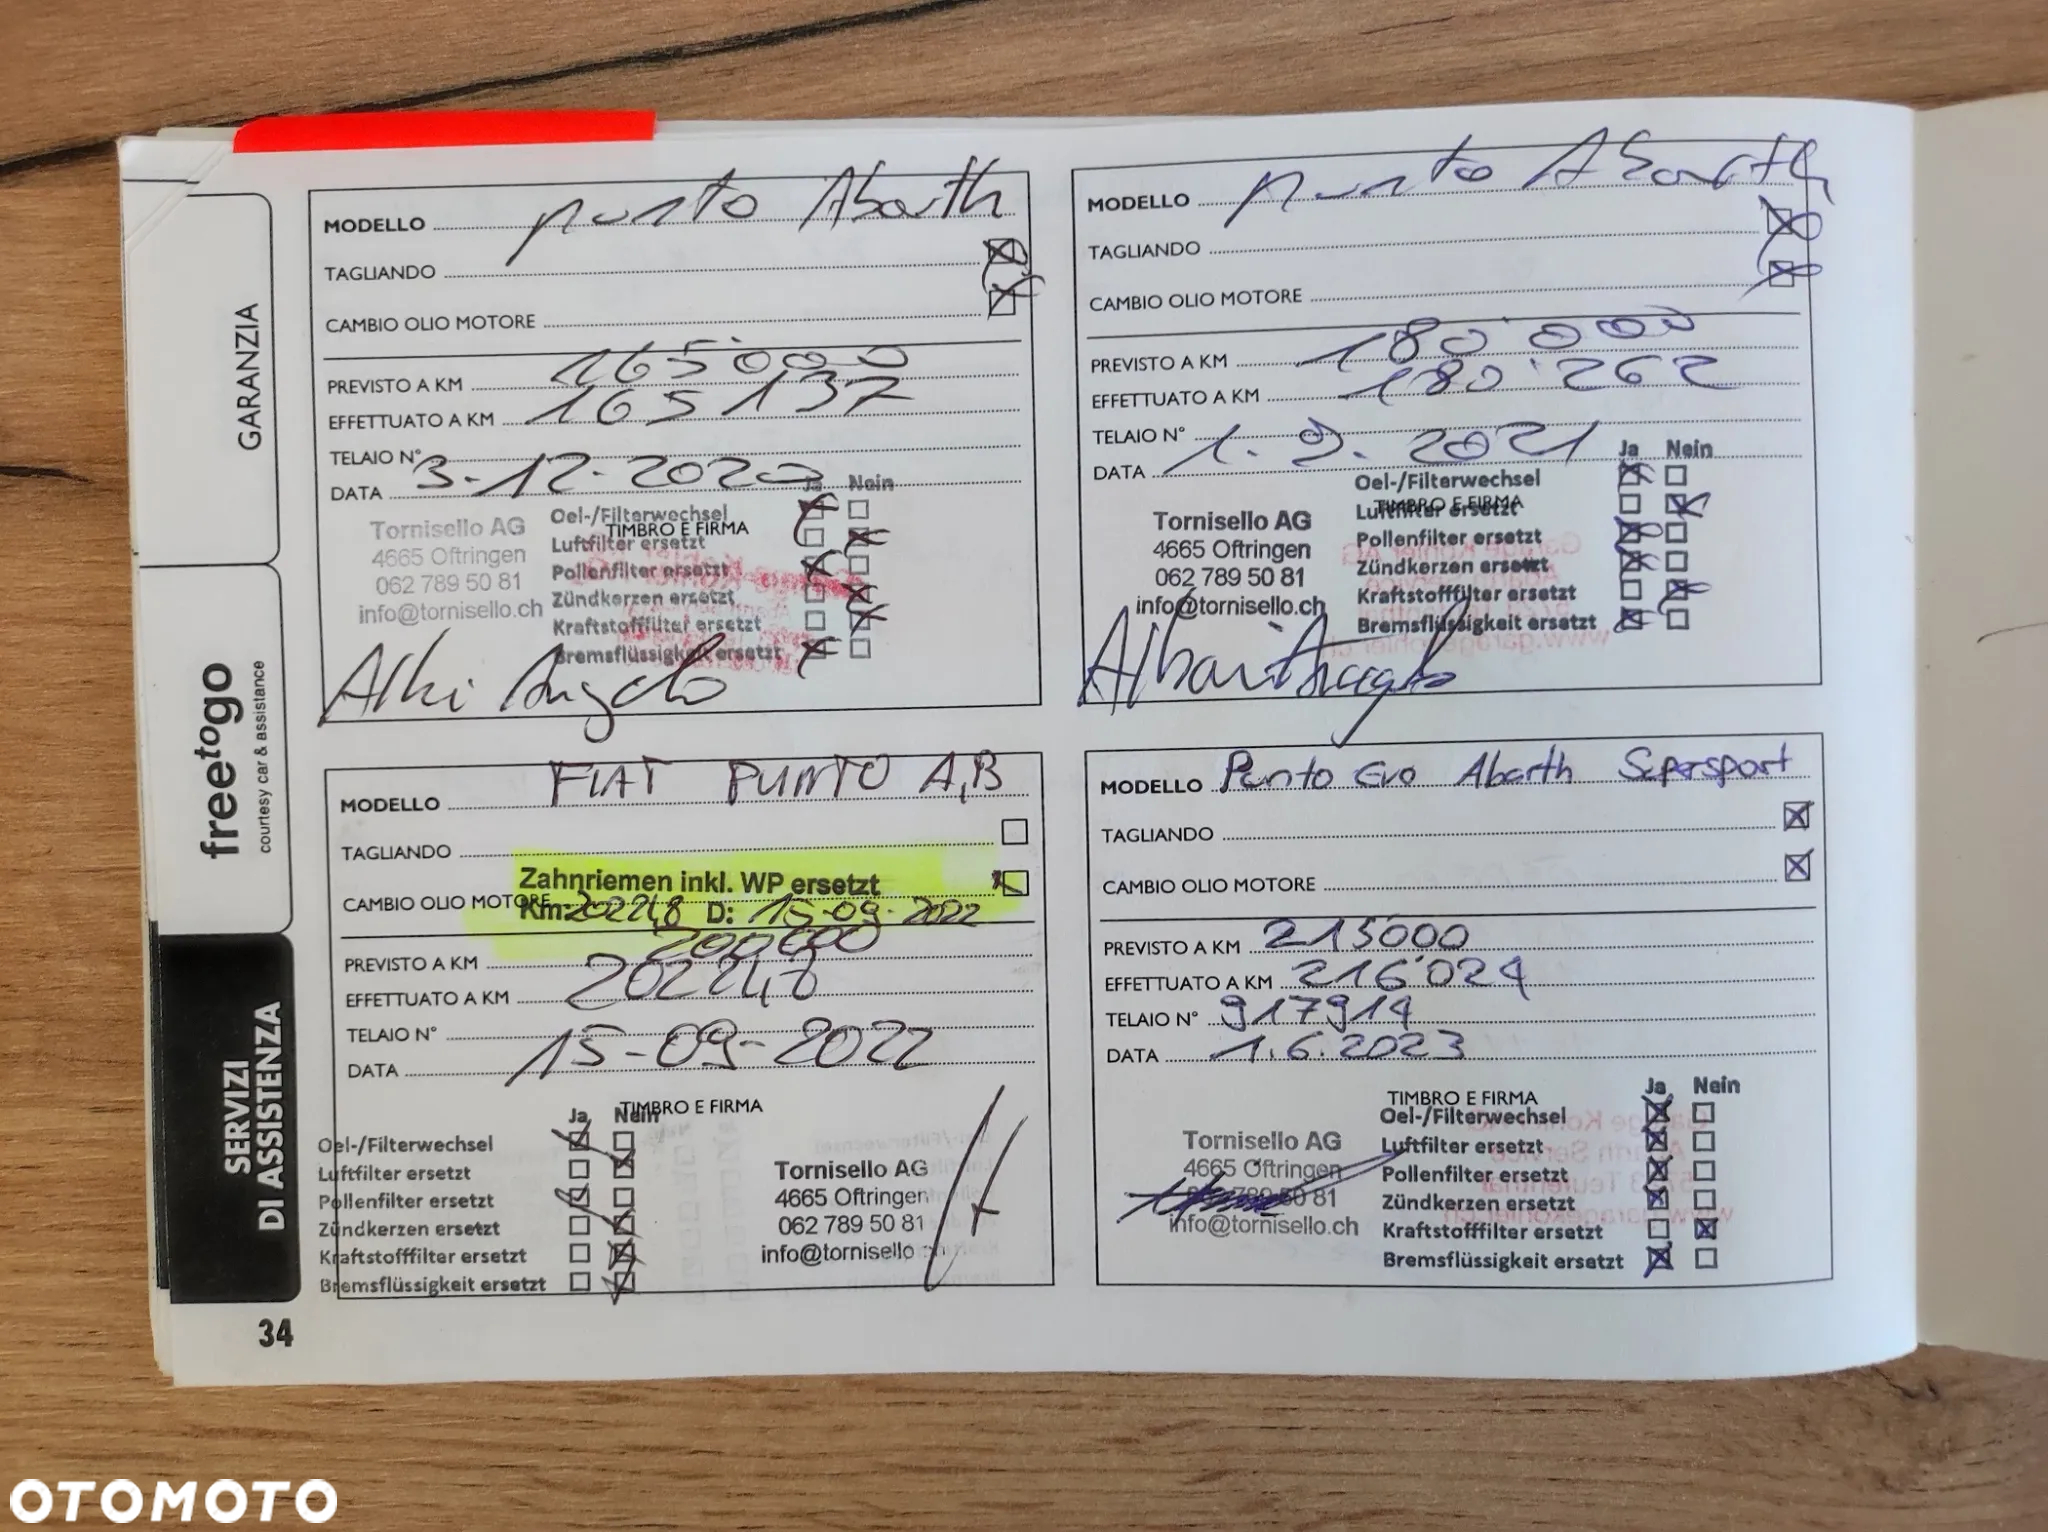 GARANZIA
freetogo
courtesy car & assistance
SERVIZI
DI ASSISTENZA
34
MODELLO punto Abarth
TAGLIANDO
CAMBIO OLIO MOTORE
PREVISTO A KM 165'000
EFFETTUATO A KM 165137
TELAIO N°
DATA 3-12-2020
Ja Nein
TIMBRO E FIRMA
Tornisello AG
4665 Oftringen
062 789 50 81
info@tornisello.ch
Oel-/Filterwechsel
Luftfilter ersetzt
Pollenfilter ersetzt
Zündkerzen ersetzt
Kraftstofffilter ersetzt
Bremsflüssigkeit ersetzt
MODELLO punto Abarth
TAGLIANDO
CAMBIO OLIO MOTORE
PREVISTO A KM 180'000
EFFETTUATO A KM 180'262
TELAIO N°
DATA 1.9.2021
Ja Nein
TIMBRO E FIRMA
Tornisello AG
4665 Oftringen
062 789 50 81
info@tornisello.ch
Oel-/Filterwechsel
Luftfilter ersetzt
Pollenfilter ersetzt
Zündkerzen ersetzt
Kraftstofffilter ersetzt
Bremsflüssigkeit ersetzt
MODELLO FIAT PUNTO A,B
TAGLIANDO
Zahnriemen inkl. WP ersetzt
CAMBIO OLIO MOTORE
Km: 202248 D: 15-09-2022
PREVISTO A KM 200000
EFFETTUATO A KM 202248
TELAIO N°
DATA 15-09-2022
TIMBRO E FIRMA
Ja Nein
Oel-/Filterwechsel
Luftfilter ersetzt
Pollenfilter ersetzt
Zündkerzen ersetzt
Kraftstofffilter ersetzt
Bremsflüssigkeit ersetzt
Tornisello AG
4665 Oftringen
062 789 50 81
info@tornisello
MODELLO Punto Evo Abarth Supersport
TAGLIANDO
CAMBIO OLIO MOTORE
PREVISTO A KM 215000
EFFETTUATO A KM 216'024
TELAIO N° 917914
DATA 1.6.2023
Ja Nein
TIMBRO E FIRMA
Tornisello AG
4665 Oftringen
062 789 50 81
info@tornisello.ch
Oel-/Filterwechsel
Luftfilter ersetzt
Pollenfilter ersetzt
Zündkerzen ersetzt
Kraftstofffilter ersetzt
Bremsflüssigkeit ersetzt
OTOMOTO